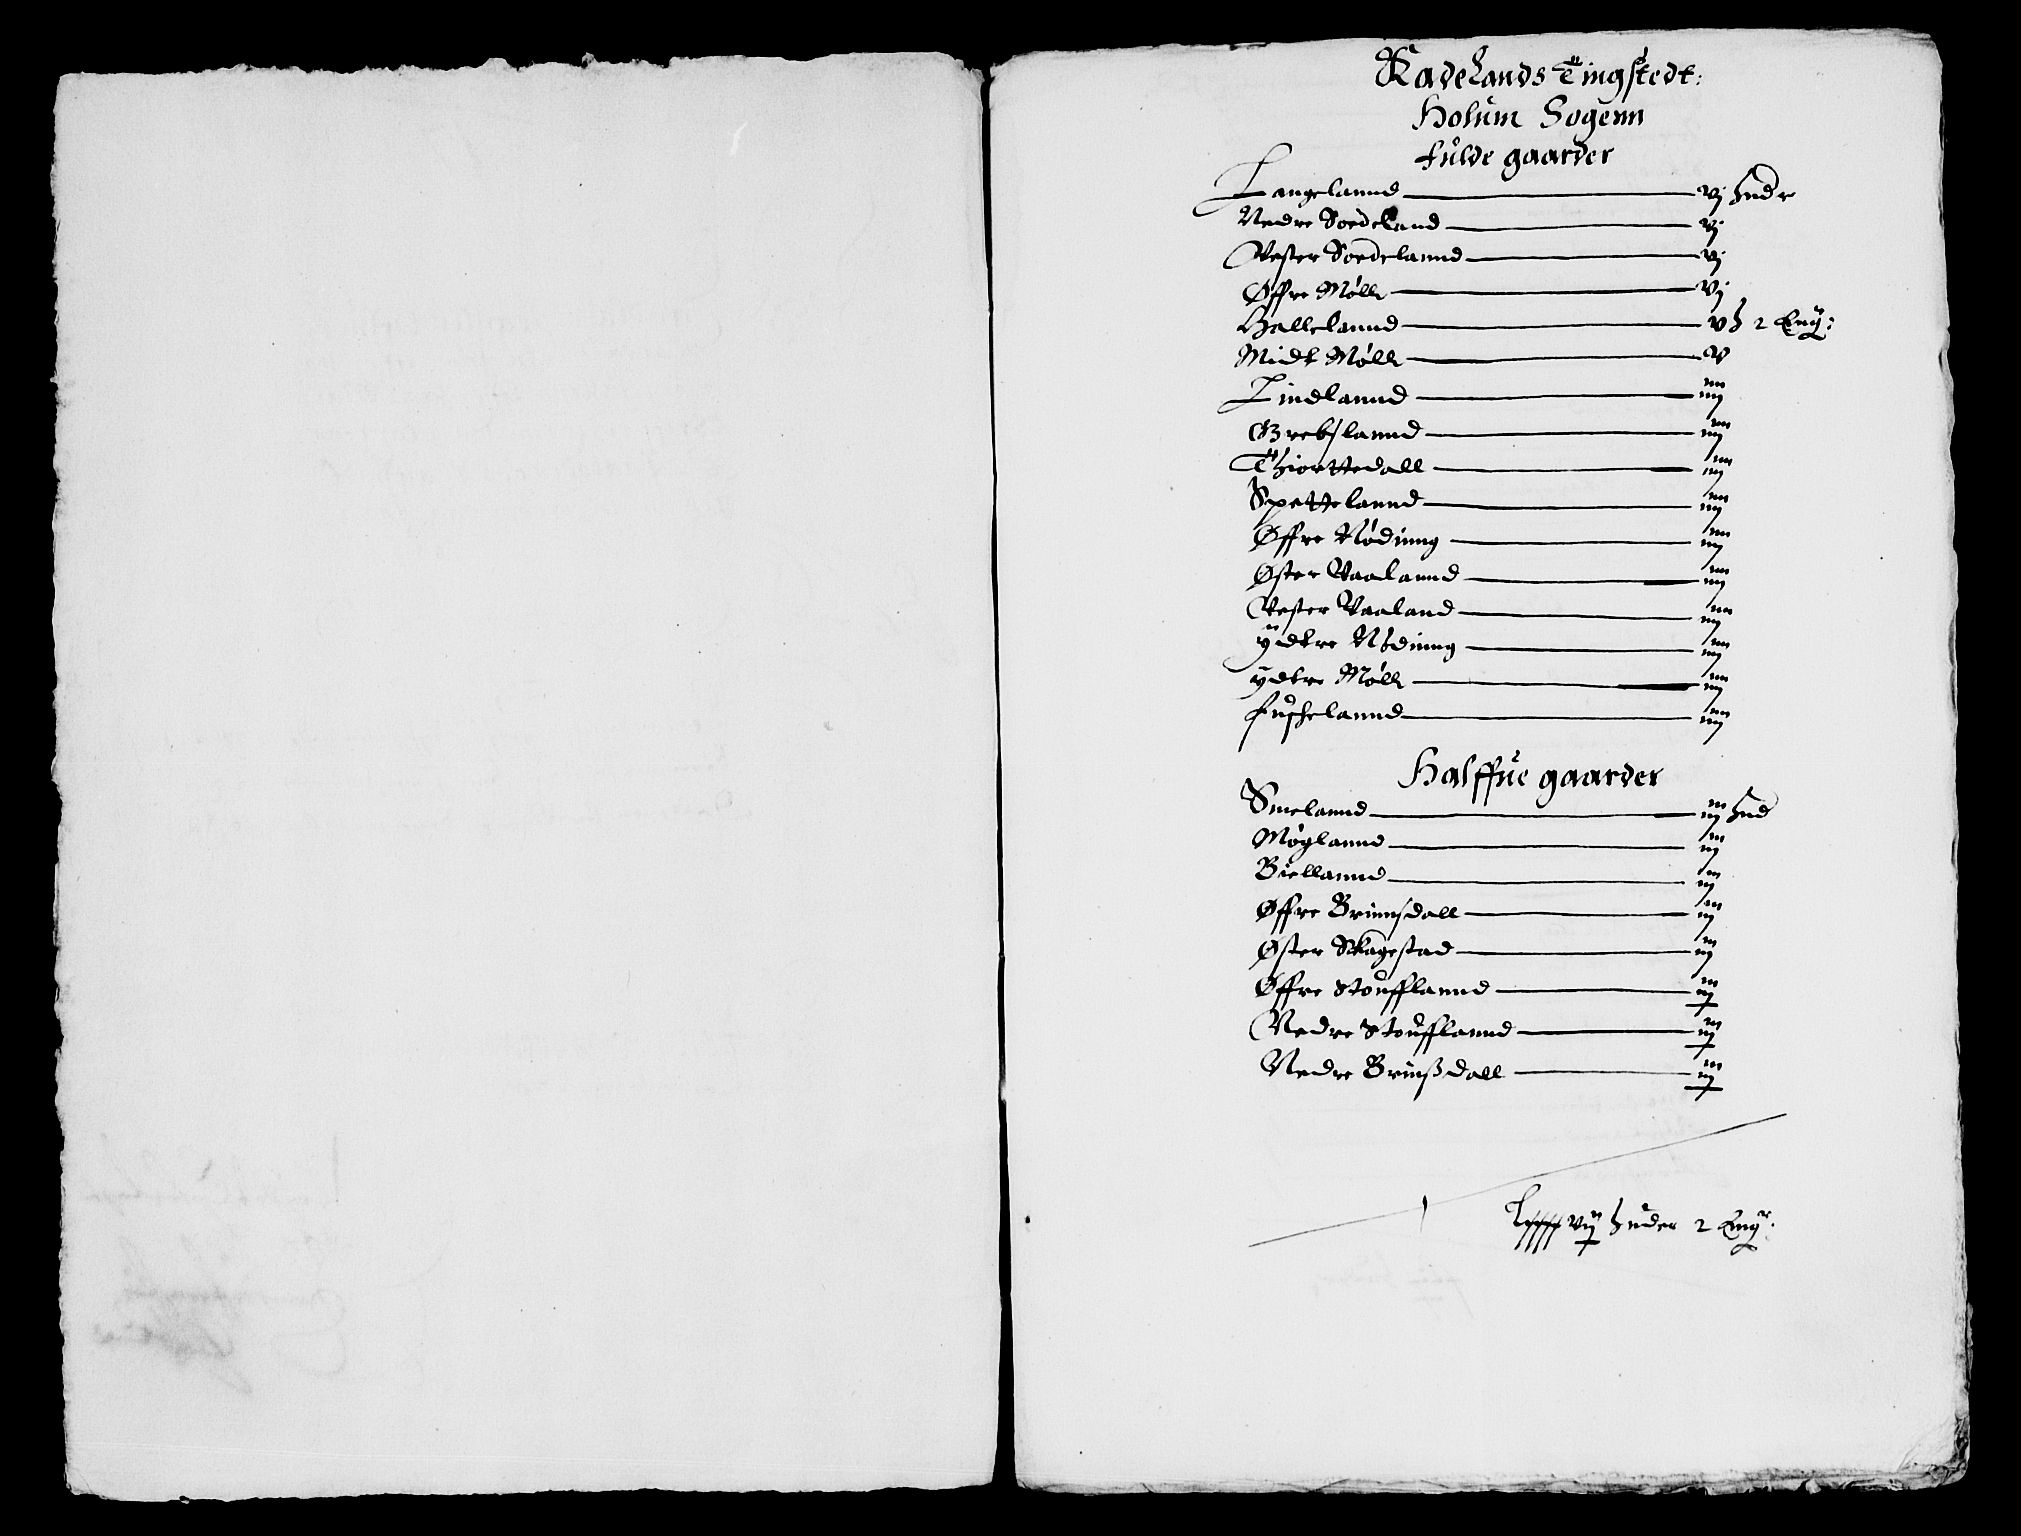 Radelands Tingstedt:
Holum Sogenn
fulde gaarder
Langelannd vj hudr
Nedre Soedeland vj
Vester Soedelannd vj
Øffre Møll vj
Hallelannd v h 2 Eng:
Midt Møll v
Lindlannd iiij
Grebslannd iiij
Thiorttedall iiij
Spettelannd iiij
Øffre Nødinng iiij
Øster Vaalannd iiij
Vester Vaaland iiij
ÿdtre Nødinng iiij
ydtre Møll iiij
fuschelannd iiij
Halffue gaarder
Smelannd iij hud
Møglannd iij
Biellannd iij
Øffre Brinnsdall iij
Øster Skagestad iij
Øffre Stoufflannd iij
Nedre Stoufflannd iij
Nedre Brinßdall iij
Lxxxx vij huder 2 Eng: